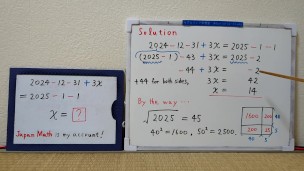 2024-12-31+3x
=2025-1-1
x = ?
Japan Math is my account!
Solution
2024-12-31+3x = 2025-1-1
(2025-1)-43+3x = 2025-2
-44+3x = -2
+44 for both sides, 3x = 42
x = 14
By the way ...
√2025 = 45
40²=1600, 50²=2500.
1600 200
200 25
40 5